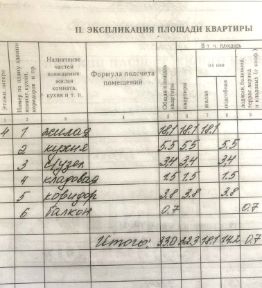 II. ЭКСПЛИКАЦИЯ ПЛОЩАДИ КВАРТИРЫ
Назначение частей помещения: жилая комната, кухня и т. п.
Формула подсчета помещений
Общая площадь квартиры
В т. ч. площадь
из нее
жилая
подсобная
1 2 3 4 5 6 7 8 9
4 1 жилая 18.1 18.1 18.1
2 кухня 5.5 5.5 5.5
3 с/узел 3.4 3.4 3.4
4 кладовая 1.5 1.5 1.5
5 коридор 3.8 3.8 3.8
6 балкон 0.7 0.7
Итого: 33.0 32.3 18.1 14.2 0.7